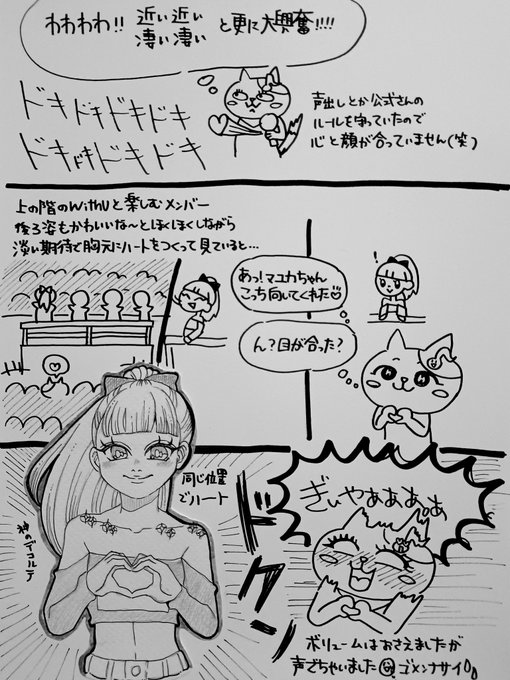 わわわわ!! 近い近い
凄い凄い と更に大興奮!!!!
ドキドキドキドキ
ドキドキドキドキ
声出しとか公式さんの
ルールを守っていたので
心と顔が合っていません(笑)
上の階のWithUと楽しむメンバー
後ろ姿もかわいいな〜とほくほくしながら
淡い期待で胸元にハートをつくって見ていると…
あっ!マユカちゃん
こっち向してくれた
!
ん?目が合った?
同じ位置
でハート
神のデコルテ
ドクーン
ぎぃやぁぁぁぁ
ボリュームはおさえましたが
声でちゃいました ゴメンナサイ